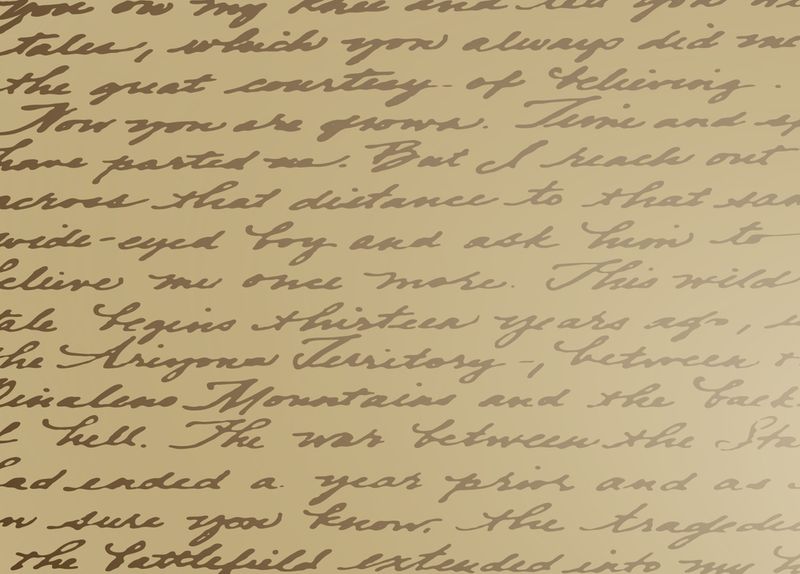 you on my knee and tell you
tales, which you always did
the great courtesy - of believing.
Now you are grown. Time and
have parted me. But I reach out
across that distance to that
wide-eyed boy and ask him to
believe me once more. This wild
tale begins thirteen years ago,
the Arizona Territory -, between
Pinaleno Mountains and the back
hell. The war between the
had ended a year prior and as
sure you know, the
the battlefield extended into my